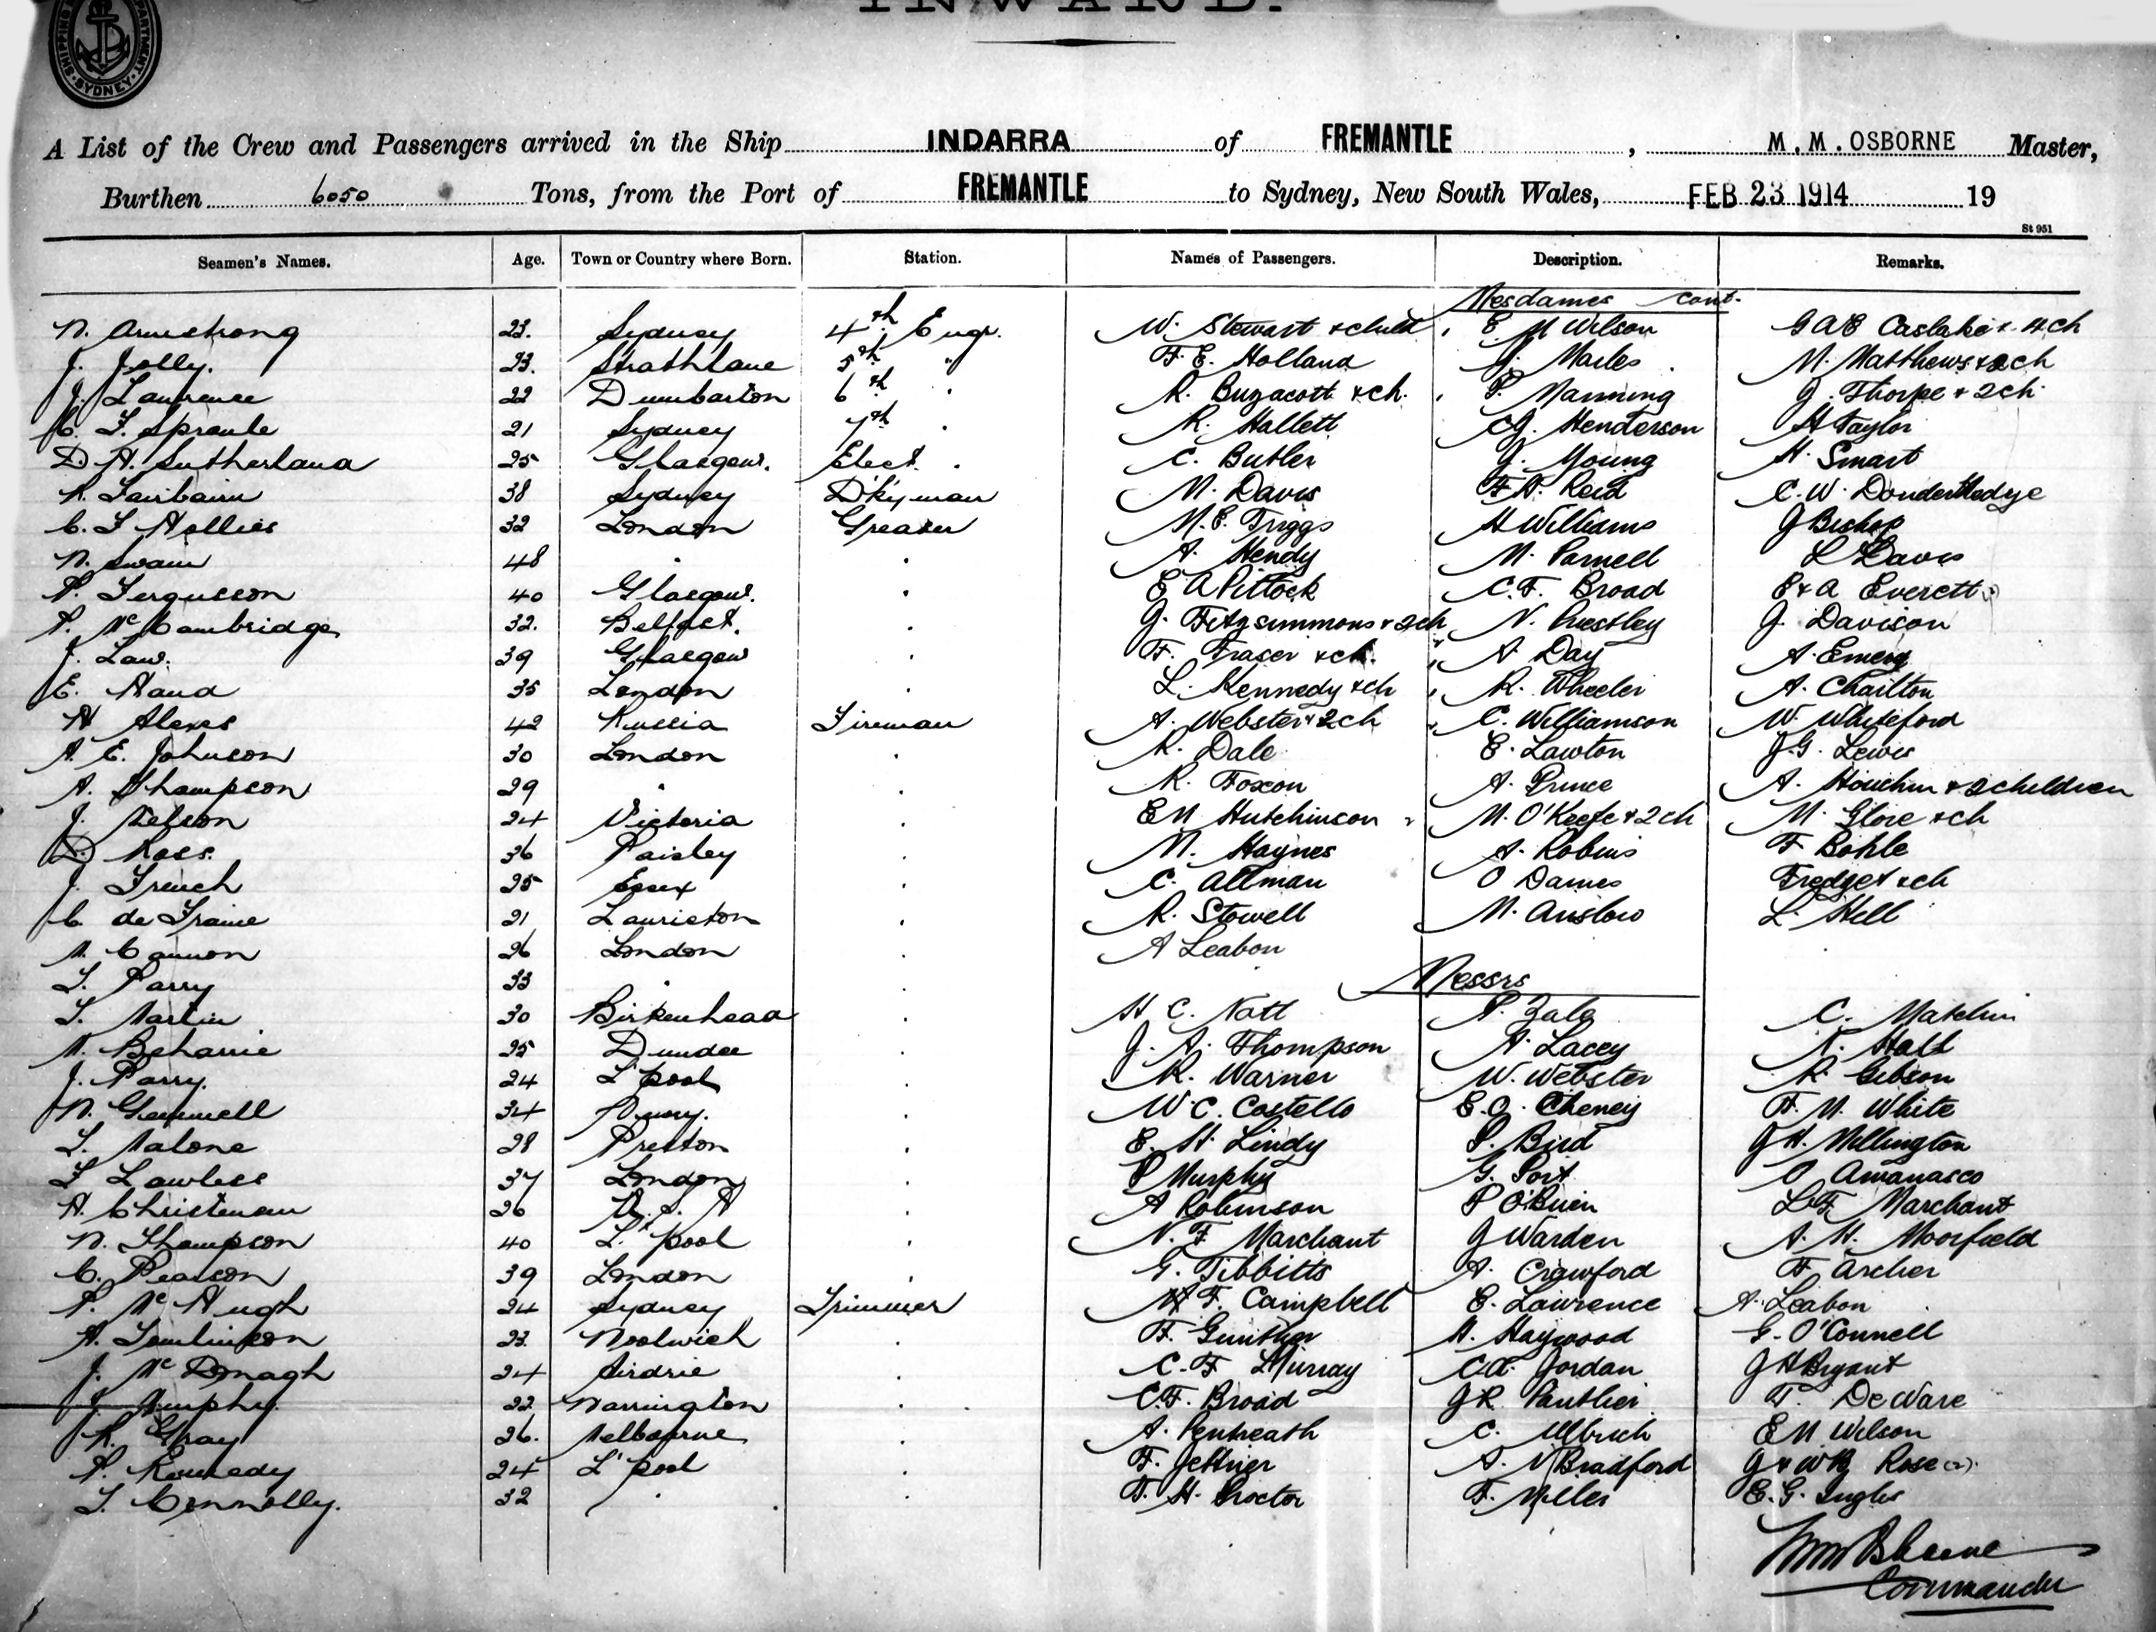 INWARD.
SHIPPING DEPARTMENT SYDNEY
A List of the Crew and Passengers arrived in the Ship INDARRA of FREMANTLE , M.M. OSBORNE Master,
Burthen 6050 Tons, from the Port of FREMANTLE to Sydney, New South Wales, FEB 23 1914 19
St 951
Seamen's Names. Age. Town or Country where Born. Station. Names of Passengers. Description. Remarks.
Mesdames cont.
N. Armstrong 23. Sydney 4th Engr. W. Stewart & child E M Wilson G A E Caslake & 4 ch
J. Jolly. 23. Strathlane 5th " F. E. Holland J. Marles M. Matthews & 2 ch
J. Lawrence 22 Dumbarton 6th " R. Buzacott & ch. P. Manning J. Thorpe & 2 ch
C. F. Sproule 21 Sydney 7th " R. Hallett C J. Henderson H Taylor
D. A. Sutherland 25 Glasgow. Elect. " C. Butler J. Young H. Smart
R. Fairbairn 38 Sydney D'kyman M. Davis F. A. Reid C. W. Donderthedge
C. F Hollies 32 London Greaser M. E. Triggs H Williams J Bishop
N. Swain 48 " " A. Hendy M. Parnell L Davis
P. Fergusson 40 Glasgow. " E A Pittock C. F. Broad E & A Everett
P. McCambridge 32. Belfast. " J. Fitzsimmons & 2 ch N. Priestley J. Davison
J. Law. 39 Glasgow " F. Fraser & ch. A Day A. Emery
E. Hand 35 London " L. Kennedy & ch R. Wheeler A. Charlton
H Alexes 42 Russia Fireman A. Webster & 2 ch C. Williamson W. Whiteford
A. E. Johnson 30 London " R. Dale E. Lawton J. G. Lewis
A. Thompson 29 " " R. Foxon A. Prince A. Houchin & 2 children
J. Nelson 24 Victoria " E M Hutchinson M. O'Keefe & 2 ch M. Glore & ch
D. Ross. 36 Paisley " M. Haynes A. Robins F Bohle
J. French 25 Essex " C. Altman O Dames Fredget & ch
C de Fraine 21 Laurieton " R. Stowell M. Anslow L. Hell
M. Cannon 26 London " A Leabon
T. Parry 33 " "
Messrs
T. Martin 30 Birkenhead " H C. Nott P. Zala C. Matchin
W. Beharrie 25 Dundee " J. A. Thompson A. Lacey A. Hall
J. Parry. 24 L'pool " R. Warner W. Webster R. Gibson
N. Gemmell 34 " W. C. Costello E. O. Cheney F. M. White
T. Malone 28 Preston " E. H. Lindy P. Bird J H. Millington
F Lawless 37 London " P Murphy G. Port O Amanasco
A. Christeman 26 U. S. A " A Robinson P O'Brien L F. Marchant
N. Thompson 40 L'pool " N. F. Marchant J Warden A. H. Moorfield
C. Pearson 39 London " G. Tibbitts A. Crawford F. Archer
P. McHugh 24 Sydney Trimmer W F. Campbell E. Lawrence A. Leabon
A. Tomlinson 23. Woolwich " F. Gunther H. Haywood G. O'Connell
J. McDonagh 24 Airdrie " C. F Murray C A. Jordan J H Bryant
J. Murphy. 22. Warrington " C. F. Broad J R. Panthier T. De Ware
R. Gray 26. Melbourne " A. Penheath C. Ulbrich E M Wilson
P. Kennedy 24 L'pool " F. Jeffrier A. V Bradford J & W B Rose (2).
T. Connolly. 32 " " T. H. Proctor F. Miller E. G. Inglis
MM Osborne
Commander